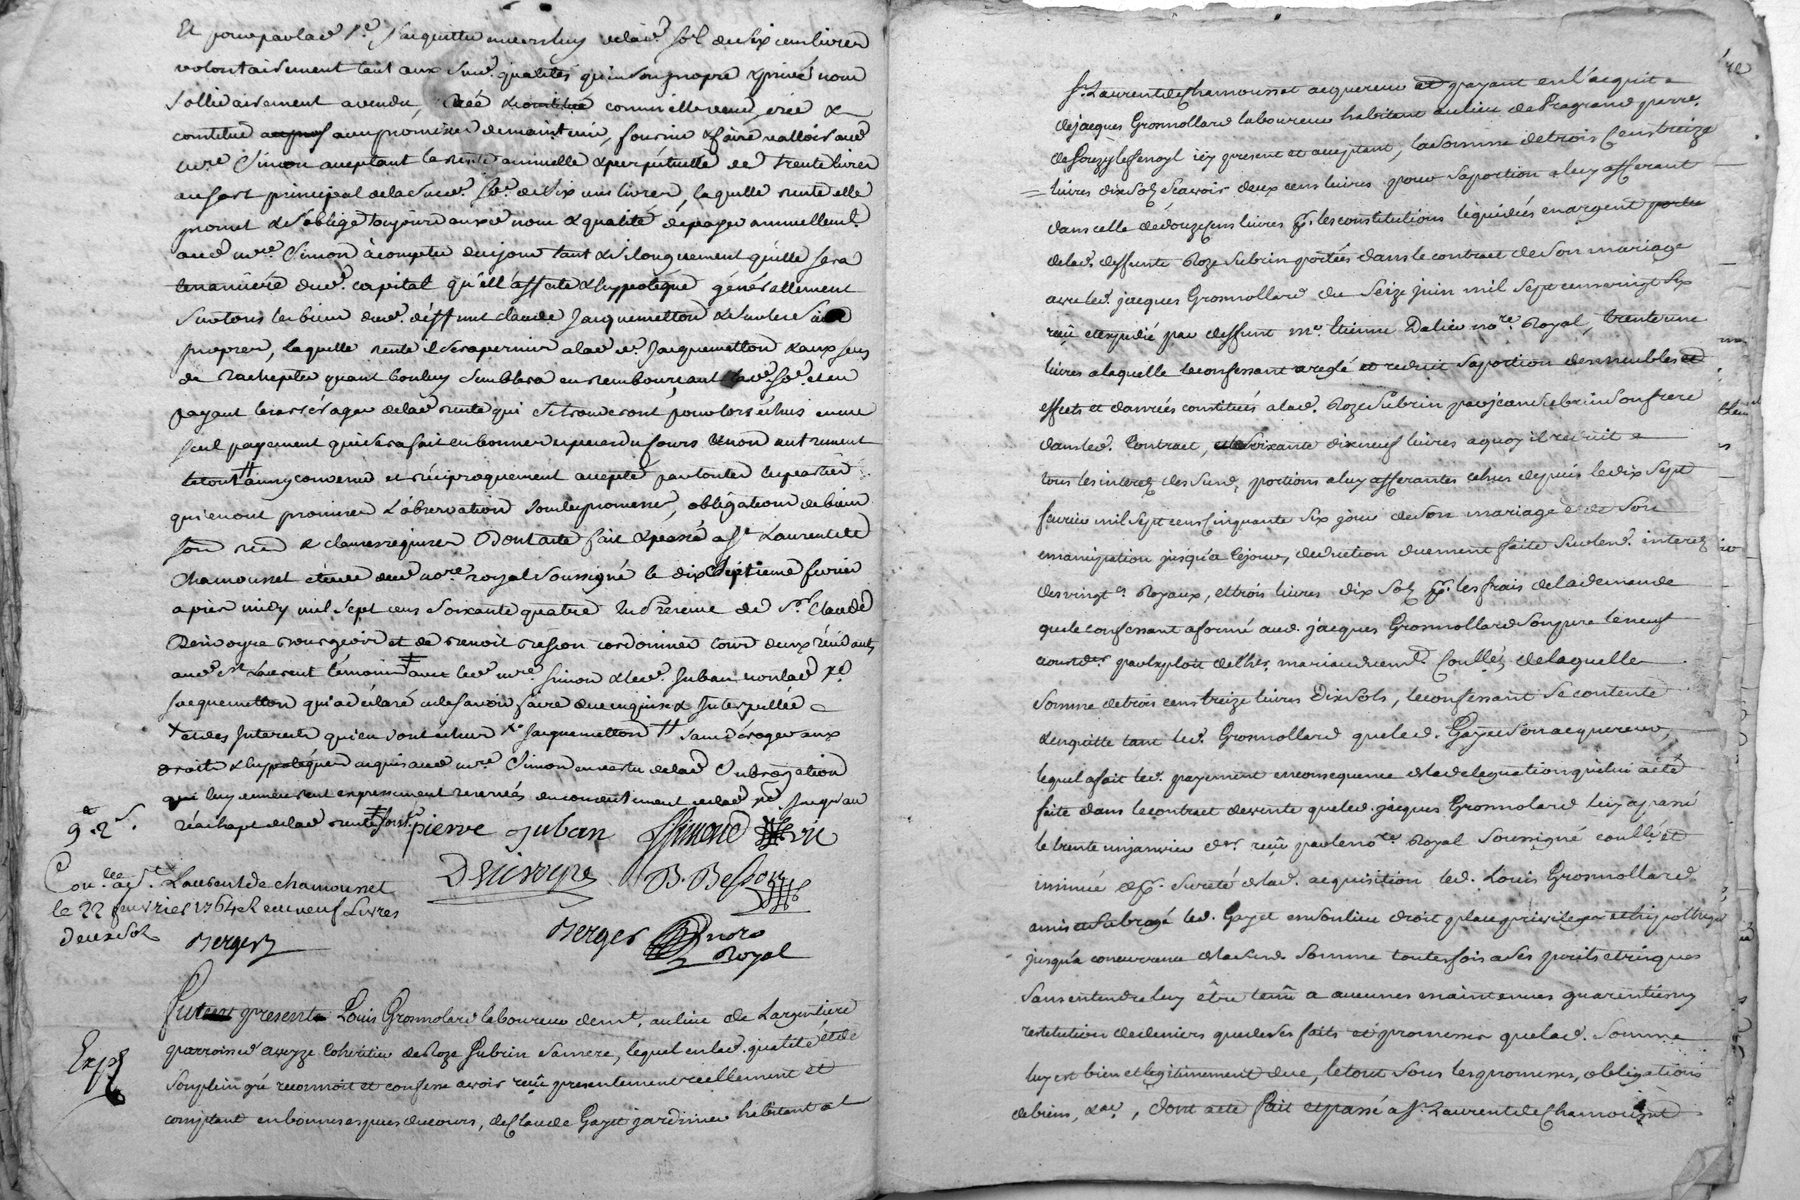 Et pour par lad. s'acquitter envers luy de lad. so.e de six cens livres
volontairement tant aux susd. qualités qu'en son propre & privé nom
sollidairement a vendu, créé & constitué comme elle vend, crée &
constitue avec promesse de maintenir, fournir & faire valloir aud
m.re Simon acceptant la rente annuelle & perpetuelle de trente livres
au sort principal de la susd. so.e de six cens livres, laquelle rente elle
promet & s'oblige toujours auxd. nom & qualité de payer annuellem.t
aud m.re Simon à compter du jour tant & si longuement qu'elle sera
tenanciere dud. capital qu'ell'affecte & hyppoteque générallement
sur tous les biens dud. deffunt claude Jacquemetton & sur les siens
propres, laquelle rente il sera permis a lad. v.e Jacquemetton & aux siens
de rachepter quant bon luy semblera en remboursant lad. so.e et en
payant les arrérages de lad rente qui se trouveront pour lors échus en un
seul payement qui sera fait en bonnes especes du cours & non autrement
le tout # ainsy convenu et réciproquement accepté par toutes les parties
qui en ont promis l'observation sous les promesses, obligations de biens
son rend & clauses requises Dont acte fait & passé a S.t Laurent de
Chamousset étude du no.re royal soussigné le dix septieme fevrier
apres midy mil sept cens soixante quatre En Presence de S.r Claude
Denvoyre bourgeois et de benoit besson cordonnier tous deux résidants
aud S.t Laurent témoins ‡ avec led m.re Simon & led. Juban non lad v.e
Jacquemetton qui a déclaré ne le savoir faire de ce enquise & Interpellée
+ et des Interets qui en sont échus v.e Jacquemetton # sans déroger aux
droits & hypoteques acquis aud m.re Simon en vertu de lad Subrogation
qui luy demeurent expressement reservés du consentement de lad v.e jusqu'au
réachapt de lad rente ‡ sous.e pierre juban Simond
9.# 2 s.
Denvoyre B. Besson
Con.lee a S.t Laurent de chamousset
le 22 fevrier 1764 R. neuf Livres
deux sols Berger
Berger no.re
Royal
Furent présents Louis Grosmolard laboureur dem.t au lieu de Largentiere
Exp.é
parroisse d'avezze Cohéritier de Roze Subrin sa mere, lequel en lad. qualité et de
son plein gré reconnoit et confesse avoir reçu présentement reellement et
comptant en bonnes especes du cours, de Claude Gayet jardinier habitant a
S.t Laurent de Chamousset acquereur et payant en l'acquit
de jacques Grosmollard laboureur habitant au lieu de la grand pierre
de Souzy le fenoyl icy present et acceptant, la somme de trois Cens treize
livres dix sols, sçavoir deux cens livres pour sa portion a luy afferant
dans celle de douze cens livres p.r les constitutions liquidées en argent
de lad. deffunte Roze Subrin portées dans le contract de son mariage
avec led. jacques Grosmollard du Seize juin mil sept cens vingt six
reçu et expedié par deffunt m.e Etienne Dalier no.re Royal, trente une
livres a laquelle le confessant a reglé et reduit sa portion des meubles et
effets et danrées constitués a lad. Roze Subrin par jean Subrin son frere
dans led. Contract, et Soixante dix neuf livres a quoy il reduit
tous les interetz des susd. portions a luy afferantes echus depuis le dix sept
fevrier mil sept cens Cinquante six jour de son mariage & de son
emancipation jusqu'a ce jour, deduction duement faite sur lesd. interetz
des vingt.es Royaux, et trois livres dix sols p.r les frais de la demande
que le confessant a formé aud. jacques Grosmollard son pere le neuf
courant par exploit de l'h.er mariau duem.t Conllé, de laquelle
Somme de trois cens treize livres Dix sols, le confessant se contente
& en quitte tant led. Grosmollard que led. Gayet son acquereur,
lequel a fait led. payement en consequence de la delegation qui luy a été
faite dans le contract de vente que led. jacques Grosmollard luy a passé
le trente un janvier der. reçu par le no.re Royal soussigné conllé et
insinué & p.r Sureté de lad. acquisition led. Louis Grosmollard
a mis et Subrogé led. Gayet en son lieu droit place privilege et hipotheque
jusqu'a concurrence de la susd. Somme toutesfois a ses perils et risques
Sans entendre luy être tenu a aucunes maintenues guarenties ny
restitution de deniers que de ses faits et promesses que lad. Somme
luy est bien et legitimement due, le tout sous les promesses, obligations
de biens, &a., dont acte fait et passé a S.t Laurent de Chamousset